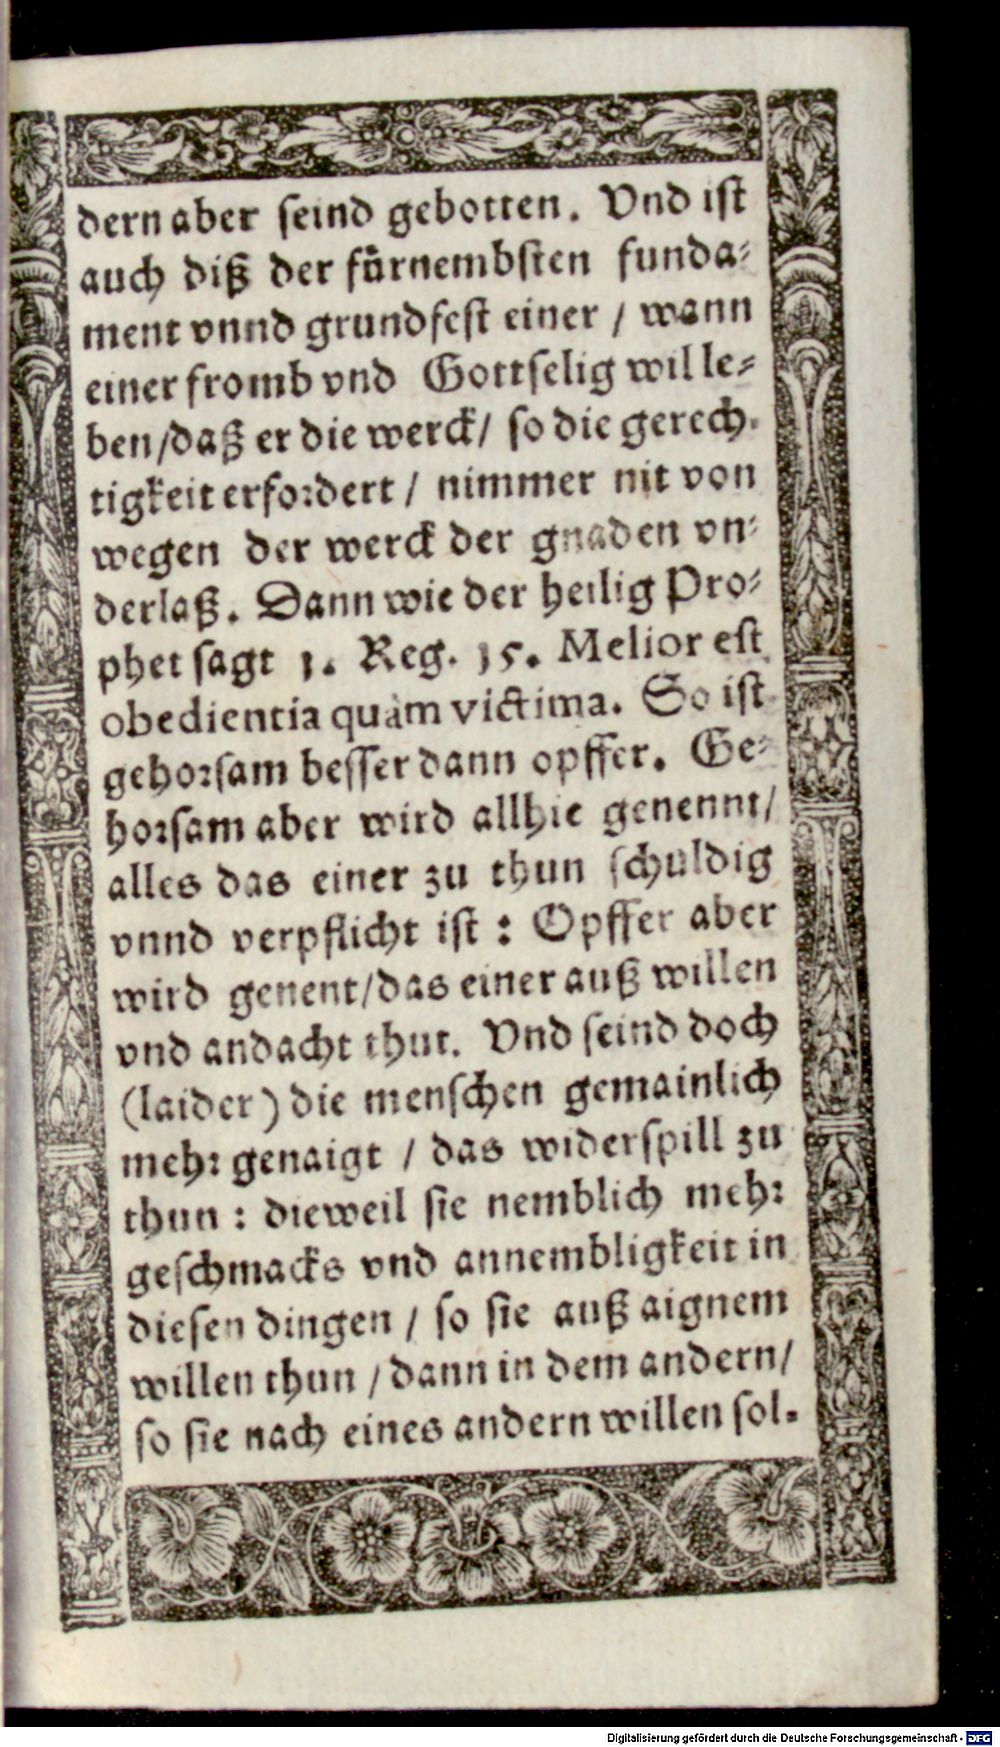 dern aber seind gebotten. Vnd ist
auch diß der fůrnembsten funda-
ment vnnd grundfest einer / wann
einer fromb vnd Gottselig wil le-
ben / daß er die werck / so die gerech-
tigkeit erfordert / nimmer nit von
wegen der werck der gnaden vn-
derlaß. Dann wie der heilig Pro-
phet sagt 1. Reg. 15. Melior est
obedientia quàm victima. So ist
gehorsam besser dann opffer. Ge-
horsam aber wird allhie genennt /
alles das einer zu thun schuldig
vnnd verpflicht ist : Opffer aber
wird genent / das einer auß willen
vnd andacht thut. Vnd seind doch
(laider) die menschen gemainlich
mehr genaigt / das widerspill zu
thun : dieweil sie nemblich mehr
geschmacks vnd annembligkeit in
diesen dingen / so sie auß aignem
willen thun / dann in dem andern /
so sie nach eines andern willen sol-
Digitalisierung gefördert durch die Deutsche Forschungsgemeinschaft - DFG